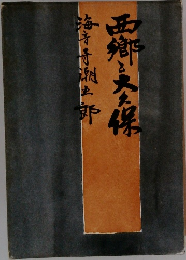 西郷と大久保
海音寺潮五郎